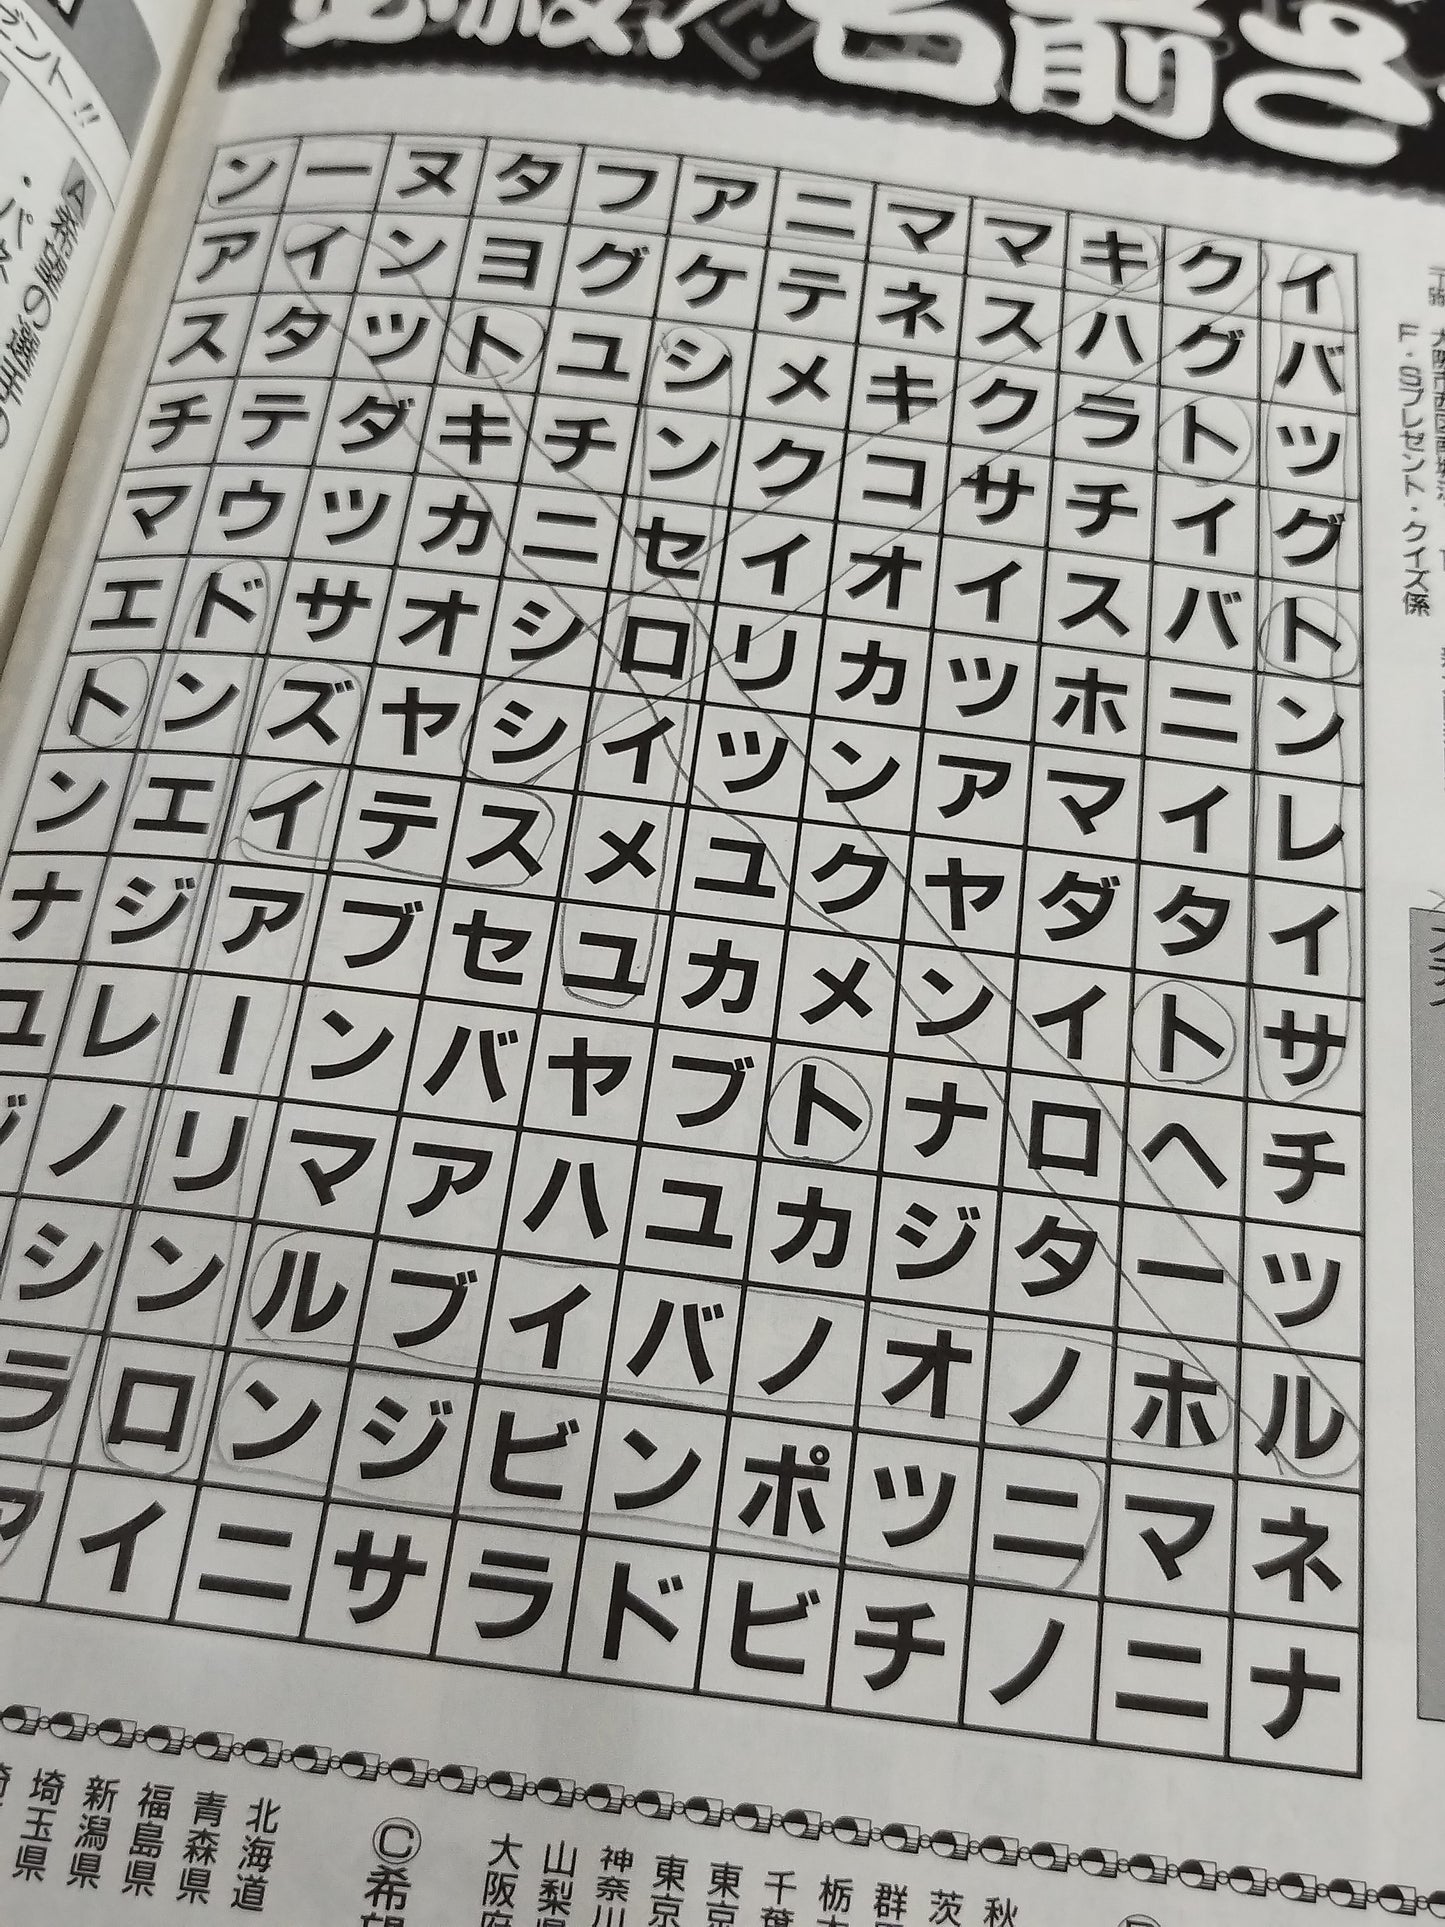 名前さ
ンーヌタフアニママキクイ
アインヨグケテネスハグバ
スタツトユシメキクラトツ
チテダキチンクコサチイグ
マウツカニセイオイスバト
エドサオシロリカツホニン
トンズヤシイツンアマイレ
ンエイテスメユクヤダタイ
ナジアブセユカメンイトサ
ユレーンバヤブトナロヘチ
ノリマアハユカジターツ
シンルブイバノオノホル
ラロンジビンポツニマネ
イニサラドビチノニナ
F・Sプレゼント・クイズ係
ント!!
秋
茨
群
栃
千葉
東京
東京
神奈川
山梨県
大阪府
Ⓒ希望
北海道
青森県
福島県
新潟県
埼玉県